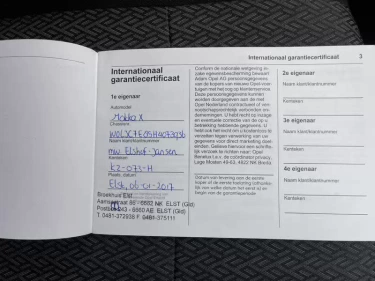 Internationaal garantiecertificaat 3
Internationaal
garantiecertificaat
1e eigenaar
Automodel
Mokka X
Chassisnr.
Naam klant/klantnummer
mw. Elshof-Jansen
Kenteken
KZ-073-H
Plaats, datum
Elst, 06-01-2017
Broekhuis Elst
Aamsestraat 86 - 6662 NK ELST (Gld)
Postbus 243 - 6660 AE ELST (Gld)
T. 0481-372936 F. 0481-375111
Conform de nationale wetgeving in-
zake eigensbescherming bewaart
Adam Opel AG persoonsgegevens
van de kopers van nieuwe Opel voer-
tuigen met het oog op klantenservice.
Deze persoonsgegevens kunnen
worden doorgegeven aan de met
Opel Nederland contractueel of ven-
nootschappelijk verbonden on-
dernemingen. U hebt recht op inzage
en eventuele correctie van de op u
betrekking hebbende gegevens. U
hebt ook het recht om u kosteloos te
verzetten tegen verwerking van uw
gegevens voor direct marketing doel-
einden. Gelieve hiervoor een schrifte-
lijk verzoek te richten naar: Opel
Benelux t.a.v. de coördinator privacy,
Lage Mosten 49-63, 4822 NK Breda.
Datum van levering aan de eerste
koper of de eerste toelating (afhanke-
lijk van welke datum het eerst is) en
begin van de garantieperiode.
2e eigenaar
Naam klant/klantnummer
Kenteken
3e eigenaar
Naam klant/klantnummer
Kenteken
4e eigenaar
Naam klant/klantnummer
Kenteken